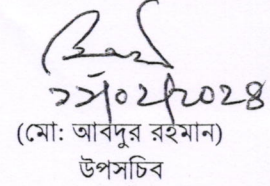 ২১/০২/২০২৪
(মো: আবদুর রহমান)
উপসচিব